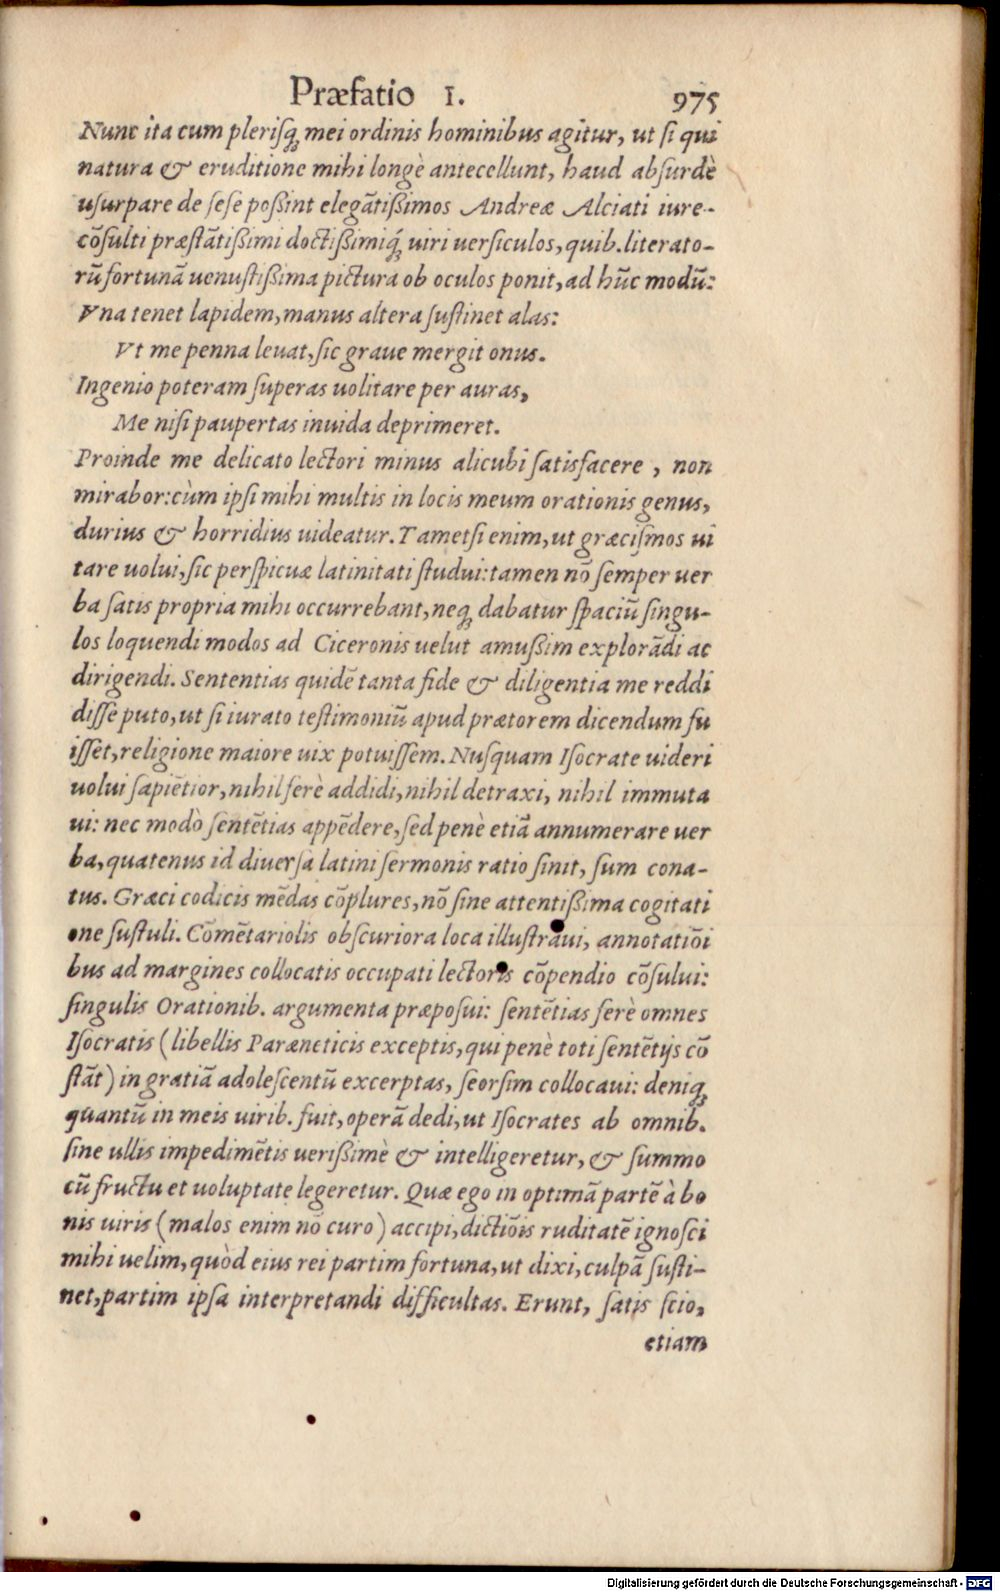 Præfatio I. 975
Nunc ita cum plerisq́; mei ordinis hominibus agitur, ut si qui
natura & eruditione mihi longè antecellunt, haud absurdè
usurpare de sese poßint elegãtißimos Andreæ Alciati iure-
cõsulti præstãtißimi doctißimiq́; uiri uersiculos, quib. literato-
rũ fortunã uenustißima pictura ob oculos ponit, ad hũc modũ:
Vna tenet lapidem, manus altera sustinet alas:
Vt me penna leuat, sic graue mergit onus.
Ingenio poteram superas uolitare per auras,
Me nisi paupertas inuida deprimeret.
Proinde me delicato lectori minus alicubi satisfacere, non
mirabor: cùm ipsi mihi multis in locis meum orationis genus,
durius & horridius uideatur. Tametsi enim, ut græcismos ui
tare uolui, sic perspicuæ latinitati studui: tamen nõ semper uer
ba satis propria mihi occurrebant, neq; dabatur spaciũ singu-
los loquendi modos ad Ciceronis uelut amußim explorãdi ac
dirigendi. Sententias quidẽ tanta fide & diligentia me reddi
disse puto, ut si iurato testimoniũ apud prætorem dicendum fu
isset, religione maiore uix potuissem. Nusquam Isocrate uideri
uolui sapiẽtior, nihil ferè addidi, nihil detraxi, nihil immuta
ui: nec modò sentẽtias appẽdere, sed penè etiã annumerare uer
ba, quatenus id diuersa latini sermonis ratio sinit, sum cona-
tus. Græci codicis mẽdas cõplures, nõ sine attentißima cogitati
one sustuli. Cõmẽtariolis obscuriora loca illustraui, annotatiõi
bus ad margines collocatis occupati lectoris cõpendio cõsului:
singulis Orationib. argumenta præposui: sentẽtias ferè omnes
Isocratis (libellis Paræneticis exceptis, qui penè toti sentẽtijs cõ
stãt) in gratiã adolescentũ excerptas, seorsim collocaui: deniq;
quantũ in meis uirib. fuit, operã dedi, ut Isocrates ab omnib.
sine ullis impedimẽtis uerißimè & intelligeretur, & summo
cũ fructu et uoluptate legeretur. Quæ ego in optimã partẽ à bo
nis uiris (malos enim nõ curo) accipi, dictiõis ruditatẽ ignosci
mihi uelim, quòd eius rei partim fortuna, ut dixi, culpã susti-
net, partim ipsa interpretandi difficultas. Erunt, satis scio,
etiam
Digitalisierung gefördert durch die Deutsche Forschungsgemeinschaft - DFG